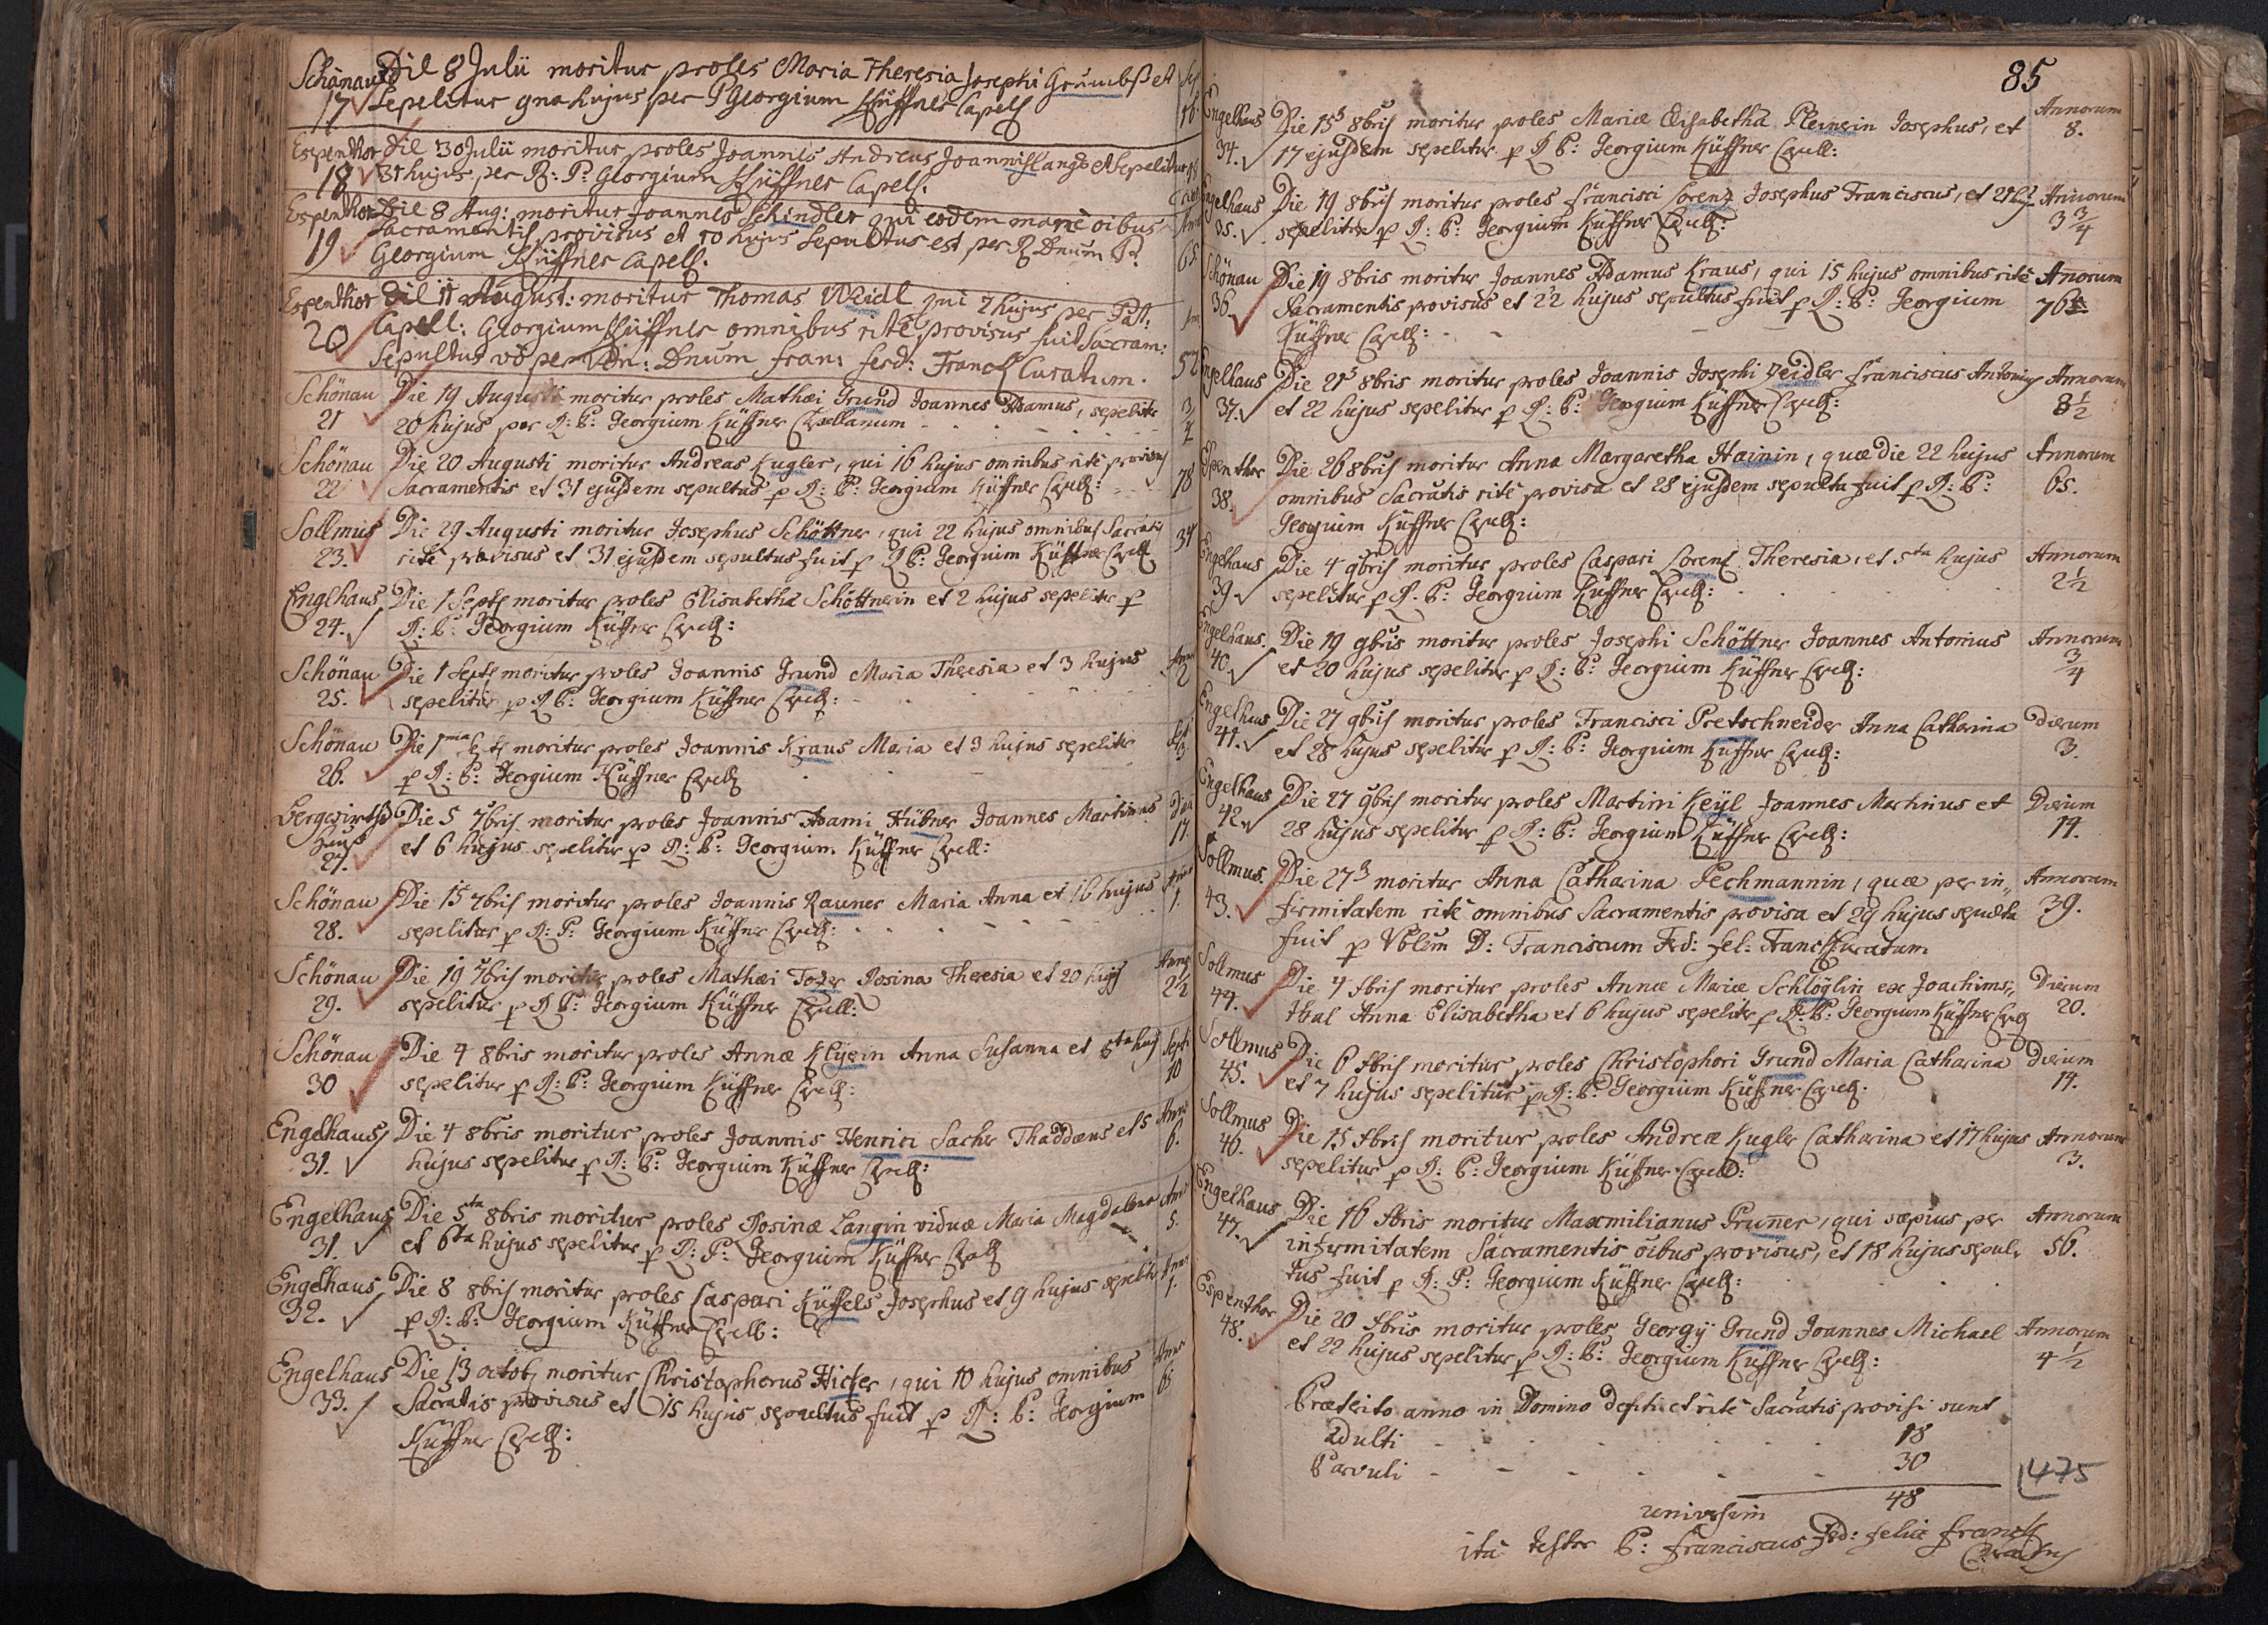 Schönau Die 8 Julii moritur proles Maria Theresia Josephi Grumbß et
17 Sepelitur 9na hujus per P Georgium Küffner Capell
Espenthor Die 30 Julii moritur proles Joannis Andreas Joannis Lang et sepelitur
18 31 hujus per R: P: Georgium Küffner Capell.
Espenthor Die 8 Aug: moritur Joannes Schindler qui eodem mane oibus
Sacramentis provisus et 10 hujus Sepultus est per R Dnum P.
19 Georgium Küffner Capell. 65.
Espenthor Die 11 August: moritur Thomas Weidl qui 7 hujus per Patr:
20 Capell: Georgium Küffner omnibus rite provisus fuit Sacram:
Sepultus vo per Adm: Dnum Fran: Ferd: Franck Curatum. 52
Schönau Die 19 Augusti moritur proles Mathæi Grund Joannes Adamus, sepelitr
21 20 hujus per R: P: Georgium Küffner Capellanum 3/4
Schönau Die 20 Augusti moritur Andreas Kugler, qui 16 hujus omnibus rite provisus
22 Sacramentis et 31 ejusdem sepultus p R: P: Georgium Küffner Capell: 78
Sollmus Die 29 Augusti moritur Josephus Schöttner, qui 22 hujus omnibus Sacratis
23. rite provisus et 31 ejusdem sepultus fuit p R P: Georgium Küffner Capell 34
Engelhaus Die 1 Septb moritur proles Elisabetha Schöttnerin et 2 hujus sepelitur p
24. R: P: Georgium Küffner Capell:
Schönau Die 1 Septb moritur proles Joannis Grund Maria Theresia et 3 hujus
25. sepelitur p R P: Georgium Küffner Capell: 2
Schönau Die 1ma Septb moritur proles Joannis Kraus Maria et 3 hujus sepelitr
26. p R: P: Georgium Küffner Capell 3
Bergwirtsh Die 5 7bris moritur proles Joannis Adami Hübner Joannes Martinus
Hauß
27. et 6 hujus sepelitur p R: P: Georgium Küffner Capell: 17.
Schönau Die 15 7bris moritur proles Joannis Rauner Maria Anna et 16 hujus
28. sepelitur p R: P: Georgium Küffner Capell: 1.
Schönau Die 19 7bris moritur proles Mathæi Tozer Rosina Theresia et 20 hujus
29. sepelitur p R P: Georgium Küffner Capell: 2 1/2
Schönau Die 4 8bris moritur proles Annæ Klyein Anna Susanna et 5ta hujus Septi
30 sepelitur p R: P: Georgium Küffner Capell: 10
Engelhaus Die 4 8bris moritur proles Joannis Henrici Sacher Thaddæus et 5
31. hujus sepelitur p R: P: Georgium Küffner Capell: 6.
Engelhaus Die 5ta 8bris moritur proles Rosinæ Langin viduæ Maria Magdalena
31. et 6ta hujus sepelitur p R: P: Georgium Küffner Capell 5.
Engelhaus Die 8 8bris moritur proles Caspari Küffels Josephus et 9 hujus sepelitr
32. p R: P: Georgium Küffner Capell: 1.
Engelhaus Die 13 octob moritur Christophorus Hicker, qui 10 hujus omnibus
33. Sacratis provisus et 15 hujus sepultus fuit p R: P: Georgium 65
Küffner Capell:
85
Engelhaus Die 15 8bris moritur proles Mariæ Elisabetha Pleinerin Josephus, et Annorum
34. 17 ejusdem sepelitur p R P: Georgium Küffner Capell: 8.
Engelhaus Die 19 8bris moritur proles Francisci Lorenz Josephus Franciscus, et 21 huj Annorum
35. sepelitur p R: P: Georgium Küffner Capell: 3 3/4
Schönau Die 19 8bris moritur Joannes Adamus Kraus, qui 15 hujus omnibus rite Anorum
36. Sacramentis provisus et 22 hujus sepultus fuit p R: P: Georgium 76
Küffner Capell:
Engelhaus Die 21 8bris moritur proles Joannis Josephi Zeidler Franciscus Antonius Annorum
37. et 22 hujus sepelitur p R: P: Georgium Küffner Capell: 8 1/2
Espenthor Die 26 8bris moritur Anna Margaretha Hainin, quæ die 22 hujus Annorum
38. omnibus Sacratis rite provisa et 28 ejusdem sepulta fuit p R: P: 65.
Georgium Küffner Capell:
Engelhaus Die 4 9bris moritur proles Caspari Lorenz Theresia, et 5ta hujus Annorum
39. sepelitur p R. P: Georgium Küffner Capell: 2 1/2
Engelhaus. Die 19 9bris moritur proles Josephi Schöttner Joannes Antonius Annorum
40. et 20 hujus sepelitur p R: P: Georgium Küffner Capell: 3/4
Engelhaus Die 27 9bris moritur proles Francisci Pretschneider Anna Catharina Dierum
41. et 28 hujus sepelitur p R: P: Georgium Küffner Capell: 3.
Engelhaus Die 27 9bris moritur proles Martini Keÿl Joannes Martinus et Dierum
42. 28 hujus sepelitur p R: P: Georgium Küffner Capell: 14.
Sollmus. Die 27 moritur Anna Catharina Pechmannin, quæ per in„ Annorum
43. firmitatem rite omnibus Sacramentis provisa et 29 hujus sepulta 39.
fuit p D: Franciscum Fed: Fel: Franck Curatum
Sollmus Die 4 Xbris moritur proles Annæ Mariæ Schlöglin ex Joachims„ Dierum
44. thal Anna Elisabetha et 6 hujus sepelitr p R: P: Georgium Küffner Capell 20.
Sollmus Die 6 Xbris moritur proles Christophori Grund Maria Catharina Dierum
45. et 7 hujus sepelitur p R: P: Georgium Küffner Capell: 14.
Sollmus Die 15 Xbris moritur proles Andreæ Kugler Catharina et 17 hujus Annorum
46. sepelitur p R: P: Georgium Küffner Capell: 3.
Engelhaus Die 16 Xbris moritur Maxmilianus Pruner, qui sæpius per Annorum
47. infirmitatem Sacramentis oibus provisus, et 18 hujus sepul„ 56.
tus fuit p R: P: Georgium Küffner Capell:
Espenthor Die 20 Xbris moritur proles Georgÿ Grund Joannes Michael Annorum
48. et 22 hujus sepelitur p R: P: Georgium Küffner Capell: 4 1/2
Præterito anno in Domino defcti et rite Sacratis provisi sunt
Adulti 18
Parvuli 30
1475
universim 48
ita testor P: Franciscus Fed: Felix Franck
Curatus